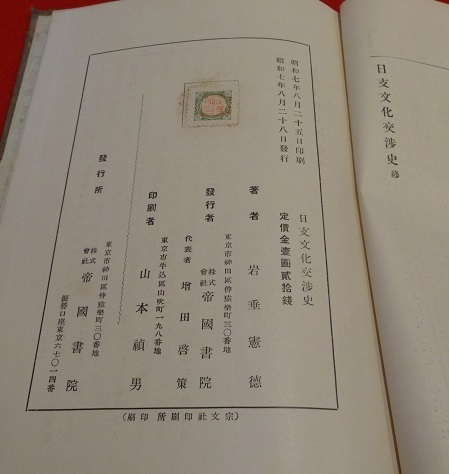 日支文化交渉史 終
昭和七年八月二十五日印刷
昭和七年八月二十八日發行
日支文化交渉史
定價金壹圓貳拾錢
著者 岩垂憲德
東京市神田區仲猿樂町三〇番地
發行者 株式會社 帝國書院
代表者 增田啓策
東京市牛込區山吹町一九八番地
印刷者 山本禎男
東京市神田區仲猿樂町三〇番地
發行所 株式會社 帝國書院
振替口座東京六七〇一四番
(宗文社印刷所印刷)